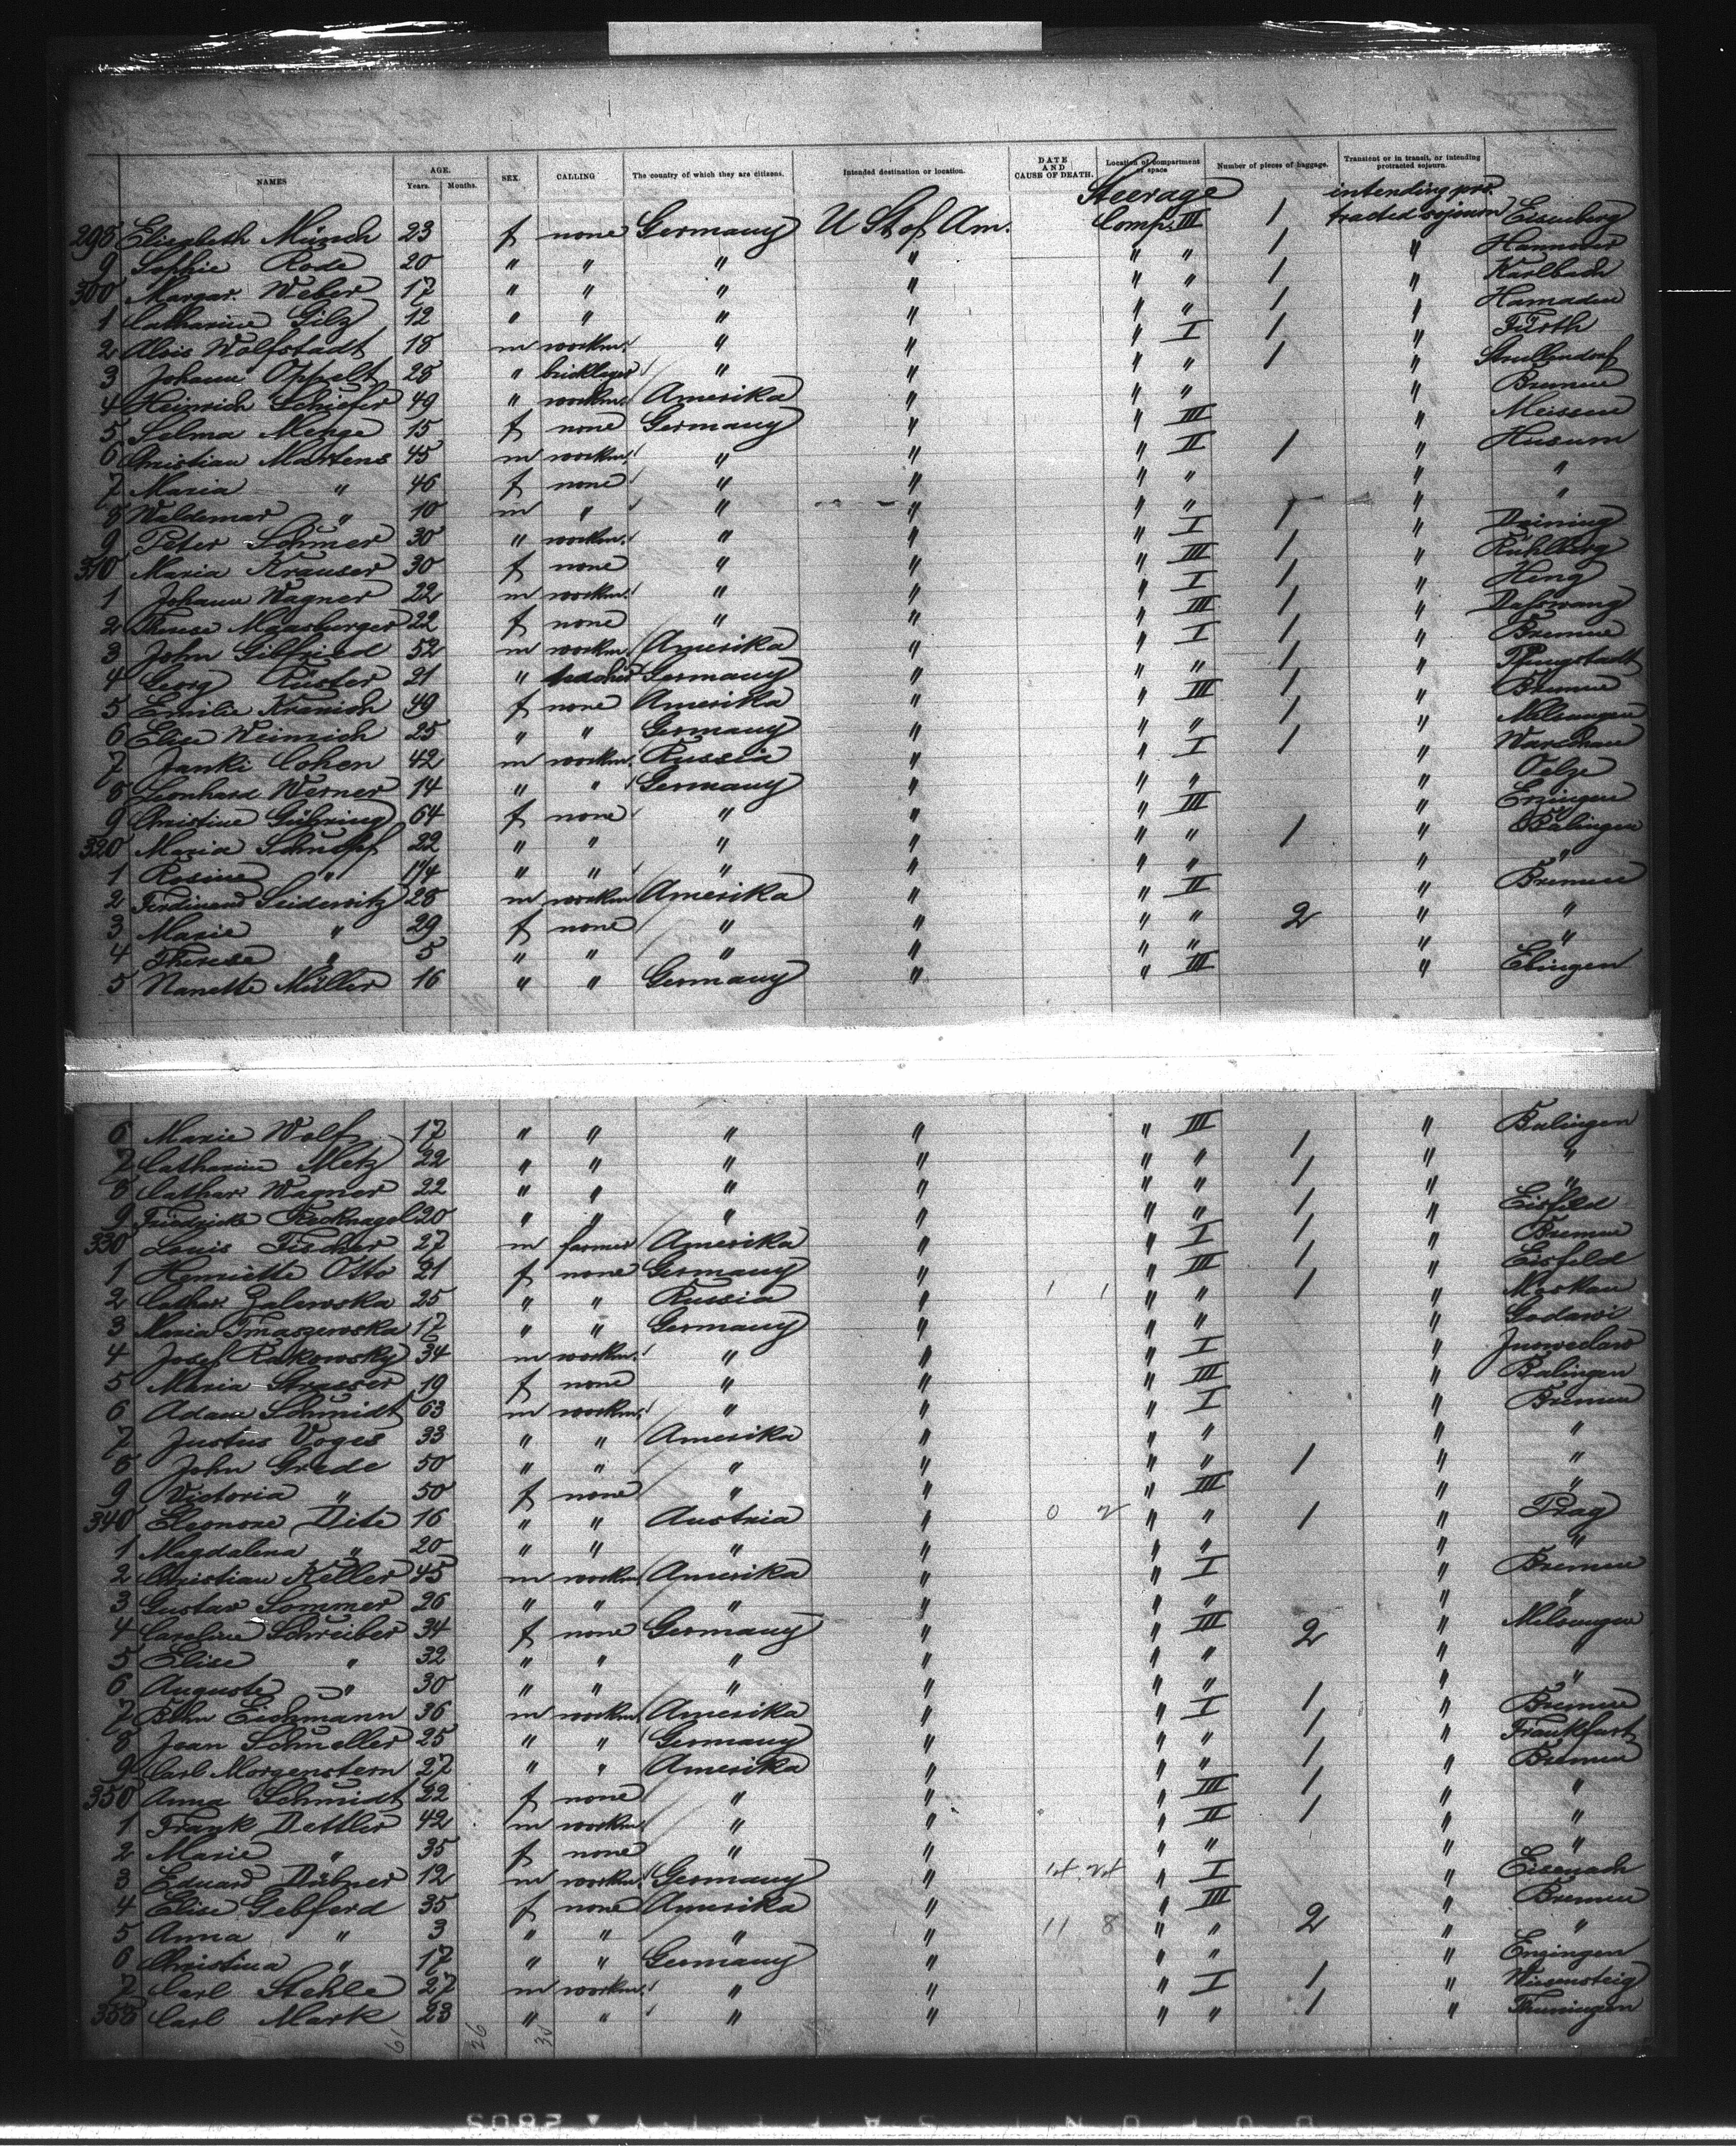 NAMES AGE. Years. Months. SEX. CALLING The country of which they are citizens. Intended destination or location. DATE AND CAUSE OF DEATH. Location of compartment or space Number of pieces of baggage. Transient or in transit, or intending protracted sojourn.
Steerage intending pro-
298 Elisabeth Münch 23 f none Germany U St of Am. Comp. III 1 tracted sojourn Eisenberg
9 Sophie Rode 20 " " " " " " 1 " Hannover
300 Margar. Weber 17 " " " " " " 1 " Karlbach
1 Catharine Gilz 12 " " " " " " 1 "
2 Alois Wolfstadt 18 m workm. " " " I 1 " Fürth
3 Johann Oppelt 28 " bricklayer " " " " 1 " Strullendorf
4 Heinrich Schiefer 49 " workm. Amerika " " " " Bremen
5 Selma Menge 15 f none Germany " " III " Meissen
6 Christian Martens 45 m workm. " " " II 1 " Husum
7 Maria " 46 f none " " " " " "
8 Waldemar " 10 m " " " " " " "
9 Peter Schmer 30 " workm. " " " I 1 " Deining
310 Maria Krauser 30 f none " " " III 1 " Kühlberg
1 Johann Wagner 22 m workm. " " " I 1 " Heng
2 Therese Maasberger 22 f none " " " III 1 " Dasswang
3 John Gilfried 52 m workm. Amerika " " I 1 " Bremen
4 Georg Rüster 21 " Germany " " " 1 " Pfungstadt
5 Emilie Kranich 49 f none Amerika " " III " Bremen
6 Elise Weinrich 25 " " Germany " " " 1 " Melsungen
7 Janki Cohen 42 m workm. Russia " " I 1 " Warschau
8 Leonhard Werner 14 " " Germany " " " " Oelze
9 Christine Gühring 64 f none " " " III " Erzingen
320 Maria Schupf 22 " " " " " " 1 " Balingen
1 Rosine " 11/4 " " " " " " " "
2 Ferdinand Seidewitz 28 m workm Amerika " " II " Bremen
3 Marie " 29 f none " " " " 2 " "
4 Therese " 5 " " " " " " " "
5 Nanette Müller 16 " " Germany " " III " Ebingen
6 Marie Wolf 17 " " " " " III " Balingen
7 Catharine Metz 22 " " " " " " 1 " "
8 Cathar. Wagner 22 " " " " " " 1 " "
9 Friedricke Recknagel 20 " " " " " " 1 " Eisfeld
330 Louis Fischer 27 m farmer Amerika " " I 1 " Bremen
1 Henriette Otto 21 f none Germany " " III 1 " Eisfeld
2 Cathar. Zalewska 25 " " Russia " 1 1 " " 1 " Moskau
3 Maria Tmaszewska 17 " " Germany " " " " Godawi
4 Josef Rakowsky 34 m workm. " " " I " Jnowedaw
5 Maria Strasser 19 f none " " " III " Balingen
6 Adam Schmidt 63 m workm. " " " I " Bremen
7 Justus Voges 33 " " Amerika " " " " "
8 John Grede 50 " " " " " " 1 " "
9 Victoria " 50 f none " " " III " "
340 Eleonore Dite 16 " " Austria " 0 2 " " 1 " Prag
1 Magdalena " 20 " " " " " " " "
2 Christian Keller 45 m workm Amerika " " I " Bremen
3 Gustav Sommer 26 " " " " " " " "
4 Caroline Schreiber 34 f none Germany " " III 2 " Melsungen
5 Elise " 32 " " " " " " " "
6 Auguste " 30 " " " " " " " "
7 Eichmann 36 m workm. Amerika " " I 1 " Bremen
8 Jean Schneller 25 " " Germany " " " 1 " Frankfurt
9 Carl Morgenstern 27 " " Amerika " " " 1 " Bremen
350 Anna Schmidt 22 f none " " " III 1 " "
1 Frank Dettler 42 m workm. " " " II 1 " "
2 Marie " 35 f none " " " " " "
3 Eduard Dübner 12 m workm. Germany " " I " Eisenach
4 Elise Gebferd 35 f none Amerika " " III " Bremen
5 Anna " 3 " " " " 11 8 " " 2 " "
6 Christina " 17 " " Germany " " " " Enzingen
7 Carl Stehle 27 m workm. " " " I 1 " Wiesensteig
358 Carl Mark 23 " " " " " " 1 " Thuningen
61 26 35